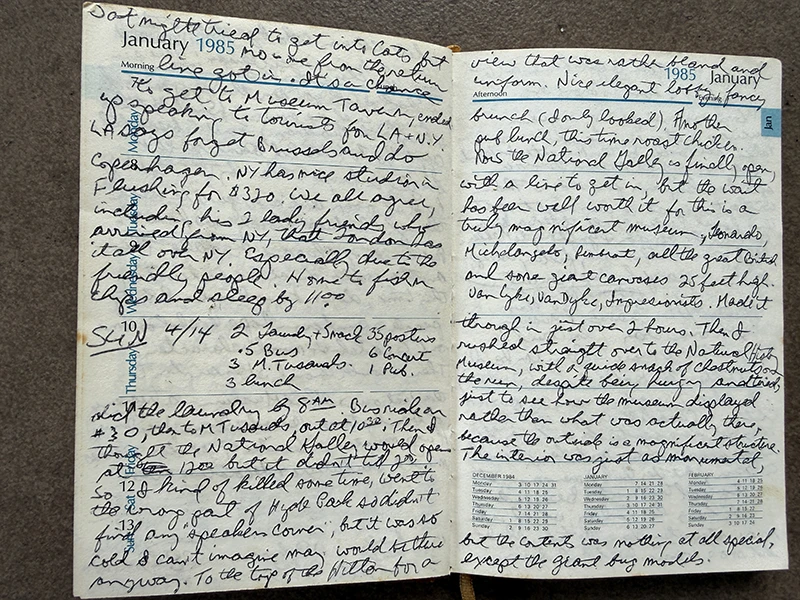 Sat night tried to get into Cats but
January 1985
no one from the return
Morning
line got in. It's a chance
to get to Museum Tavern, ended
up speaking to tourists from LA + N.Y.
LA says forget Brussels and do
Monday
Copenhagen. NY has nice studio in
Flushing for $320. We all agree,
Tuesday
including his 2 lady friends who
arrived from NY, that London has
it all over NY. Especially due to the
Wednesday
friendly people. Home to fish n
chips and sleep by 11:00
10
SUN 4/14 2 Laundry + Snack 35 posters
.5 Bus 6 Concert
3 M. Tusauds. 1 Pub.
Thursday
3 lunch
did the laundry by 8 AM. Bus ride on
#30, then to M Tusauds, out at 10:30, Then I
thought the National Galley would open
Friday
at 12:00 but it didn't til 2:00.
12
So I kind of killed some time, went to
Sat
the wrong part of Hyde Park so didn't
13
find any speakers corner, but it was so
Sun
cold I can't imagine many would be there
anyway. To the top of the Hilton for a
view that was rather bland and
1985 January
uniform. Nice elegant lobby, fancy
Afternoon
Jan
brunch (I only looked). Another
pub lunch, this time roast chicken.
Now the National Galley is finally open,
with a line to get in, but the wait
has been well worth it for this is a
truly magnificent museum, Leonardo,
Michelangelo, all the great British
and some giant canvases 25 feet high.
Van Eyke, Van Dyke, Impresionists. Made it
through in just over 2 hours. Then I
rushed straight over to the Natural Histry
Museum, with a quick snack of chestnuts on
the run, despite being hungry and tired,
just to see how the museum displayed
rather than what was actually there,
because the outside is a magnificent structure.
The interior was just as monumental,
DECEMBER 1984
Monday 3 10 17 24 31
Tuesday 4 11 18 25
Wednesday 5 12 19 26
Thursday 6 13 20 27
Friday 7 14 21 28
Saturday 1 8 15 22 29
Sunday 2 9 16 23 30
JANUARY
Monday 7 14 21 28
Tuesday 1 8 15 22 29
Wednesday 2 9 16 23 30
Thursday 3 10 17 24 31
Friday 4 11 18 25
Saturday 5 12 19 26
Sunday 6 13 20 27
FEBRUARY
Monday 4 11 18 25
Tuesday 5 12 19 26
Wednesday 6 13 20 27
Thursday 7 14 21 28
Friday 1 8 15 22
Saturday 2 9 16 23
Sunday 3 10 17 24
but the contents was nothing at all special,
except the giant bug models.